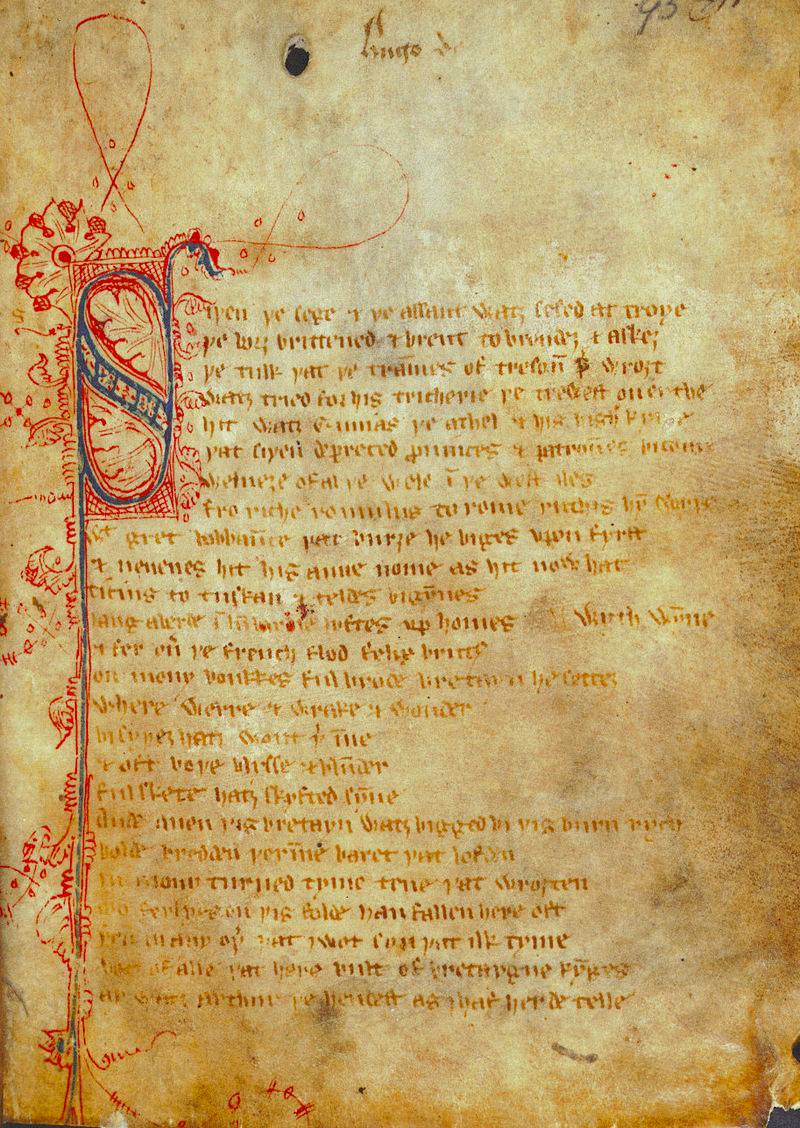 Hugo de
SIþen þe sege ⁊ þe assaut watȝ sesed at troye
þe borȝ brittened ⁊ brent to brondeȝ ⁊ askeȝ
þe tulk þat þe tra̅mes of tresou̅ þ̵ wroȝt
watȝ tried for his tricherie þe trewest on erthe
hit watȝ Ennias þe athel ⁊ his highe kynde
þat siþen depreced prouinces ⁊ patrou̅es bicome
welneȝe of al þe wele i̅ þe west iles
fro riche romulus to rome ricchis hy̅ swyþe
gret bobbau̅ce þat burȝe he biges vpon fyrst
⁊ neuenes hit his aune nome as hit now hat
ticius to tuskan ⁊ teldes bigy̅nes
langaberde i̅ lu̅bardie lyftes vp homes
⁊ fer ou̅ þe french flod felix brutus
on mony bonkkes ful brode bretayn he setteȝ
wyth wy̅ne
where werre ⁊ wrake ⁊ wonder
bi syþeȝ hatȝ wont þ̵ i̅ne
⁊ oft boþe blysse ⁊ blu̅der
ful skete hatȝ skyfted sy̅ne
Ande quen þis bretayn watȝ bigged bi þis burn rych
bolde bredden þer i̅ne baret þat lofden
in mony turned tyme tene þat wroȝten
mo ferlyes on þis folde han fallen here oft
þen in any oþ̵ þat I wot syn þat ilk tyme
bot of alle þat here bult of bretaygne ky̅ges
ay watȝ arthur þe hendest as I haf herde telle